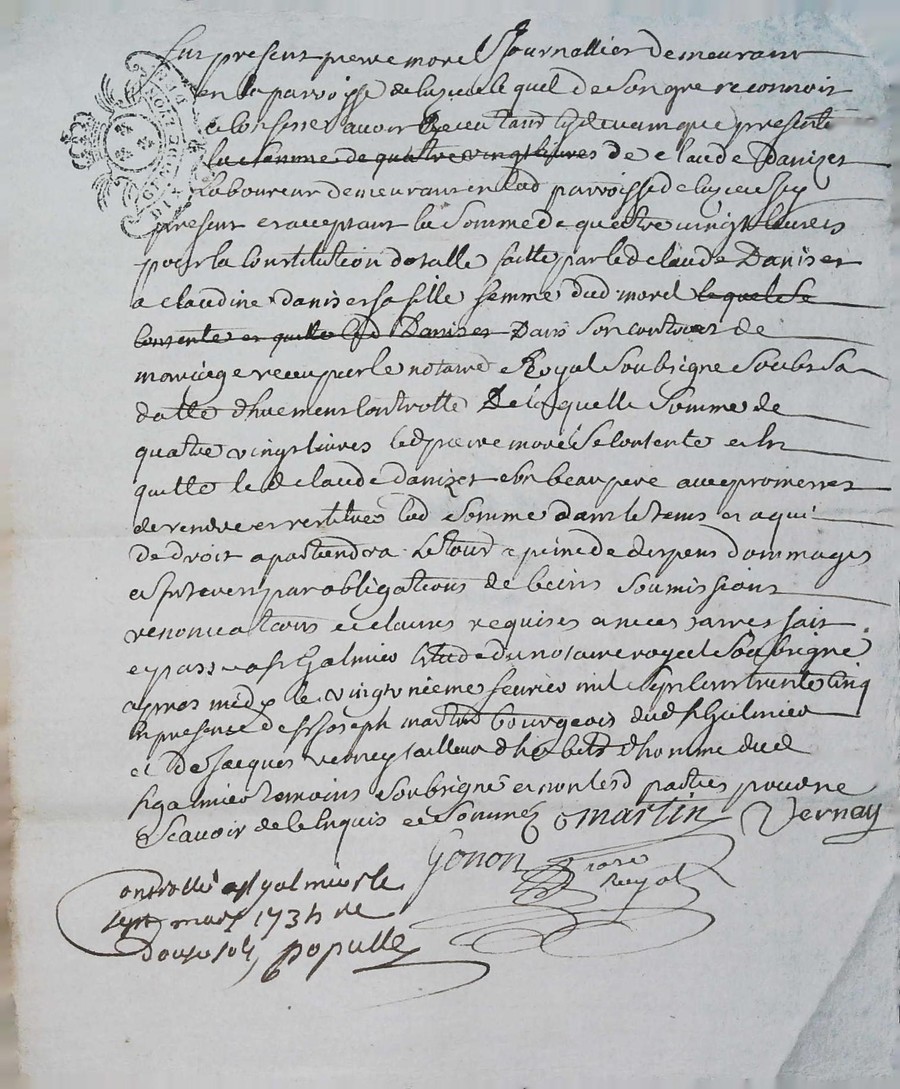 Fut present pierre morel Journallier demeurant
en la parroisse de le quel de Son gre reconnoit
et Confesse avoir Receu tant cy devant que presente
la somme de quatre vingt livres de Claude Danizet
laboureur demeurant en lad parroisse de
present et acceptant la Somme de quattre vingt livres
pour la Constitution dotalle faitte par led claude Daniset
a claudine daniset sa fille femme dud morel lequel Se
Contente et quitte led Daniset Dans Son contract de
mariage receu par le notaire Royal Soubsigne Soubs Sa
datte dhuement Controlle De laquelle Somme de
quatre vingt livres led pierre morel Se Contente et En
quitte led claude danizet son beau pere avec promesses
de rendre et restituer lad Somme dans le tems et a qui
de droit apartiendra Le tout a peine de despens dommages
et Interest par obligations de biens Soumissions
renonciations et clauses requises a fait
et passe a st Galmier Estude du notaire royal Soubsigné
apres midy le vingt fevrier mil Sept Cent trente Cinq
En presence de sr Joseph martin bourgeois dud st Galmier
et De Jacques verney tailleur d'habits d'homme dud
st galmier temoins Soubsigné et non lesd parties pour ne
Scavoir de ce Enquis et Sommés martin Vernay
Gonon
Royal
Controllé a st galmier le
sept mars 1735 re
douze sols populle
GENERALITE
DIX